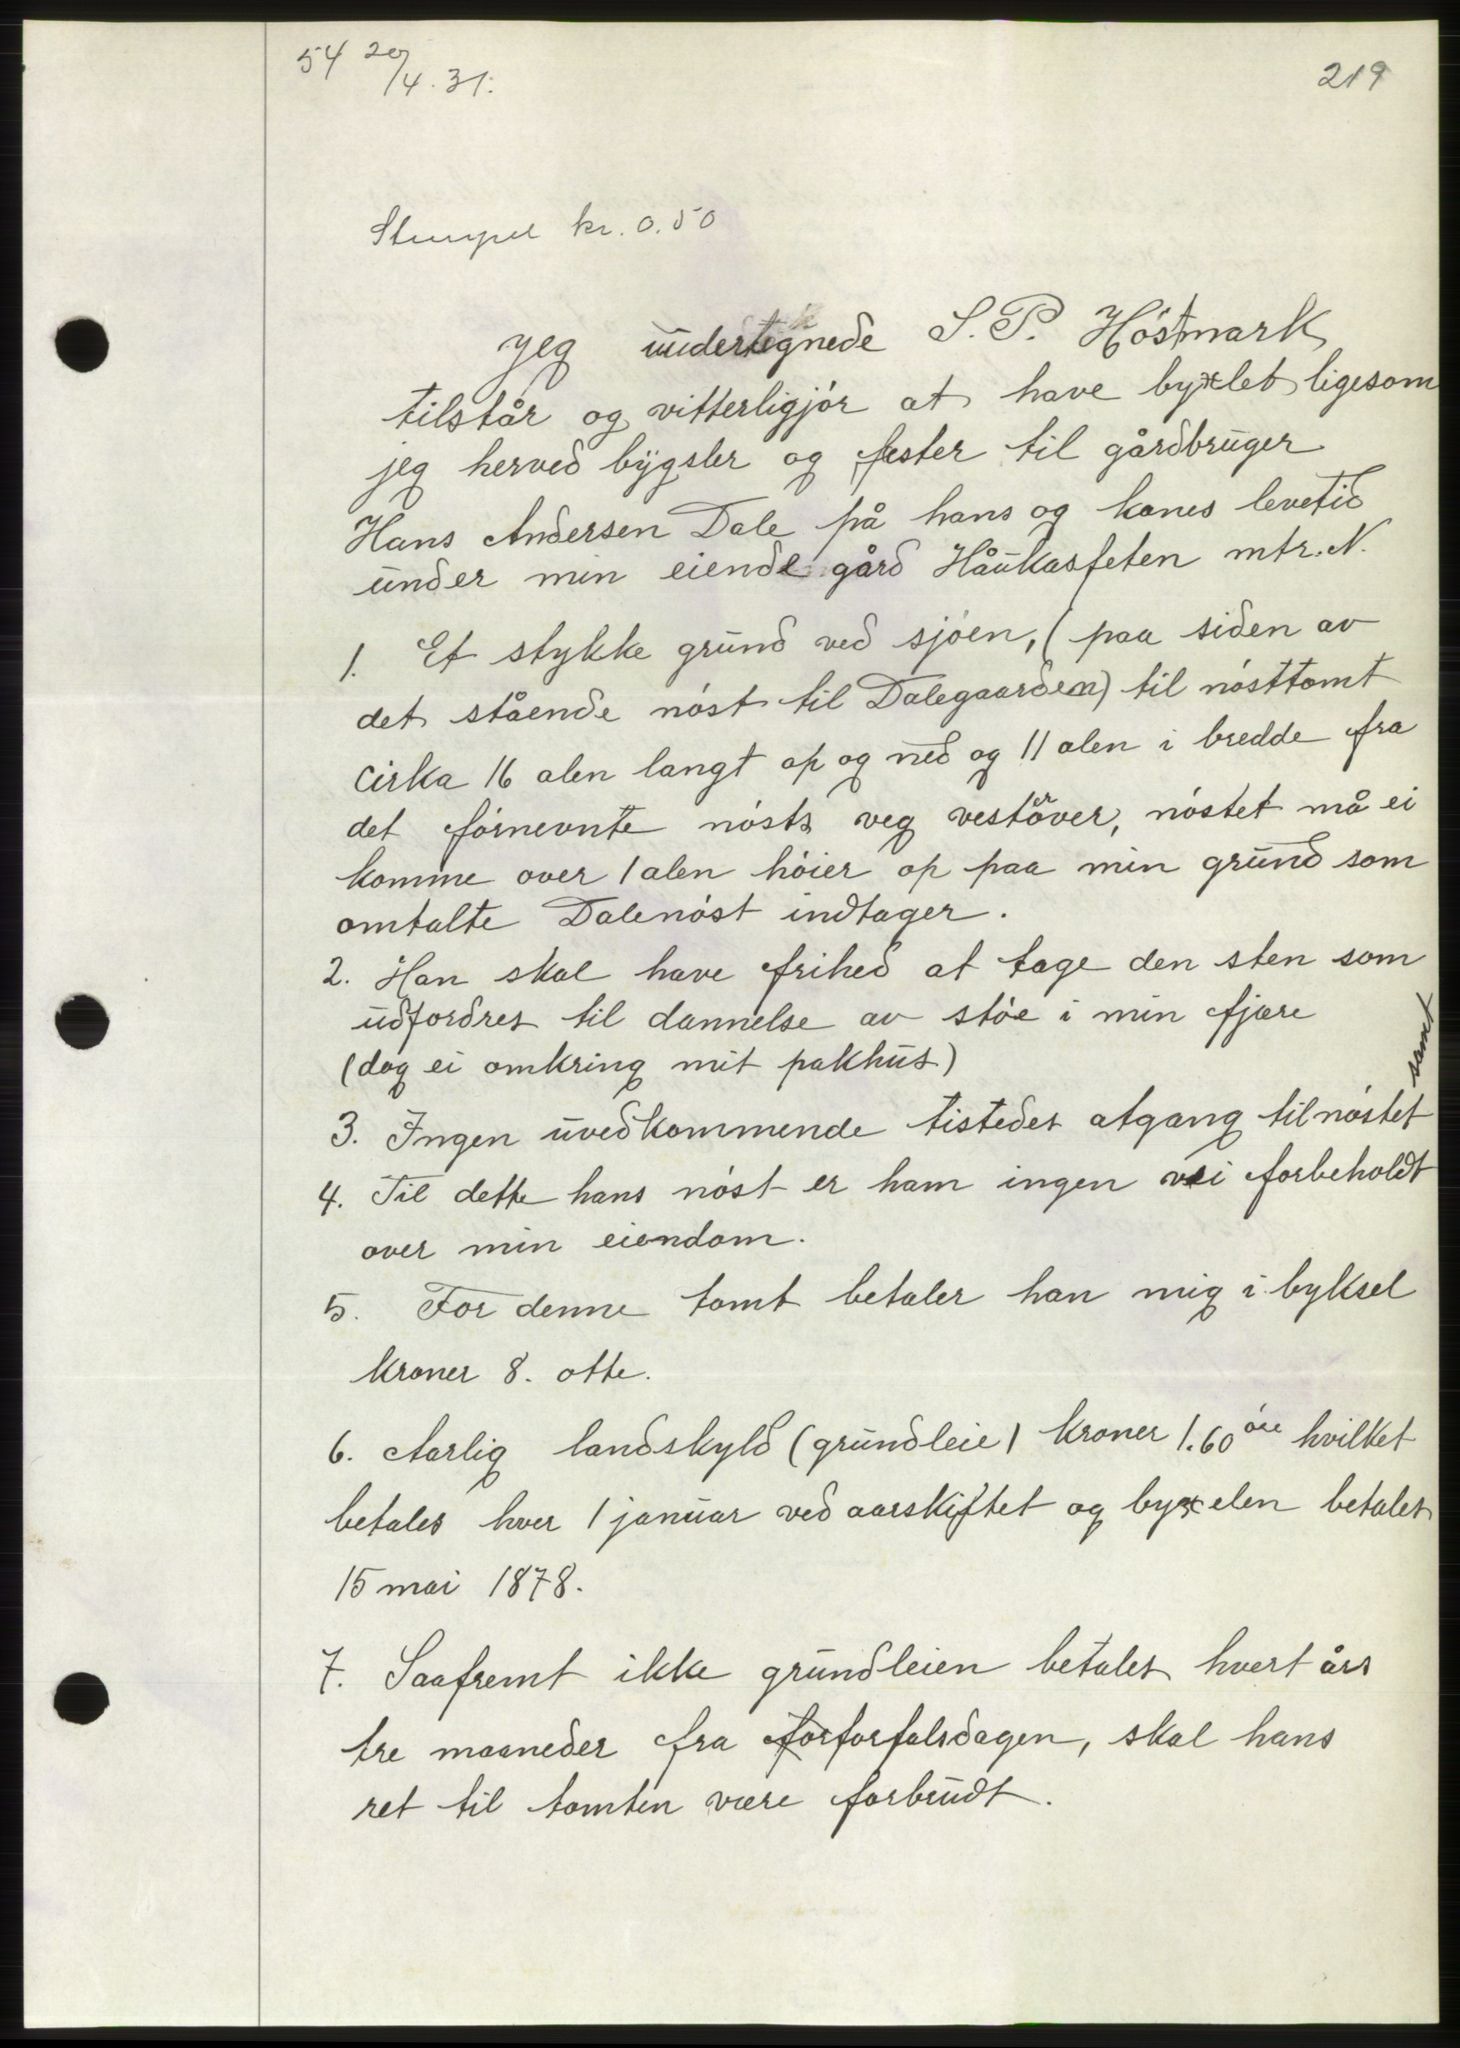 54 20/4. 31.
219
Stempel kr. 0.50
Jeg undertegnede S. P. Höstmark
tilstår og vitterligjör at have byxlet ligesom
jeg herved bygsler og fester til gårdbruger
Hans Andersen Dale på hans og kones levetid
under min eiende gård Håukasfeten mtr. N.
1. Et stykke grund ved sjöen, (paa siden av
det stående nöst til Dalegaarden) til nösttomt
cirka 16 alen langt op og ned og 11 alen i bredde fra
det förnevnte nösts veg vestöver, nöstet må ei
komme over 1 alen höier op paa min grund som
omtalte Dalenöst indtager.
2. Han skal have frihed at tage den sten som
udfordres til dannelse av stöe i min fjære
(dog ei omkring mit pakhus)
3. Ingen uvedkommende tistedes atgang til nöstet samt
4. Til dette hans nöst er ham ingen vei forbeholdt
over min eiendom.
5. For denne tomt betaler han mig i byksel
kroner 8. otte.
6. Aarlig landskyld (grundleie) kroner 1.60 öre hvilket
betales hver 1 januar ved aarskiftet og byxelen betales
15 mai 1878.
7. Saafremt ikke grundleien betales hvert års
tre maaneder fra forforfalsdagen, skal hans
ret til tomten være forbrudt.